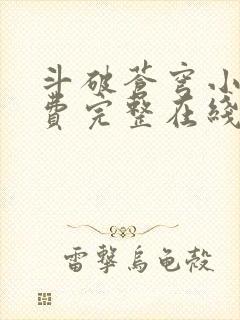 斗破苍穹小
费完整在线
雷擊烏龜殼